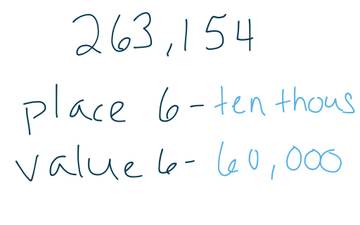 263,154
place 6- ten thous
value 6- 60,000